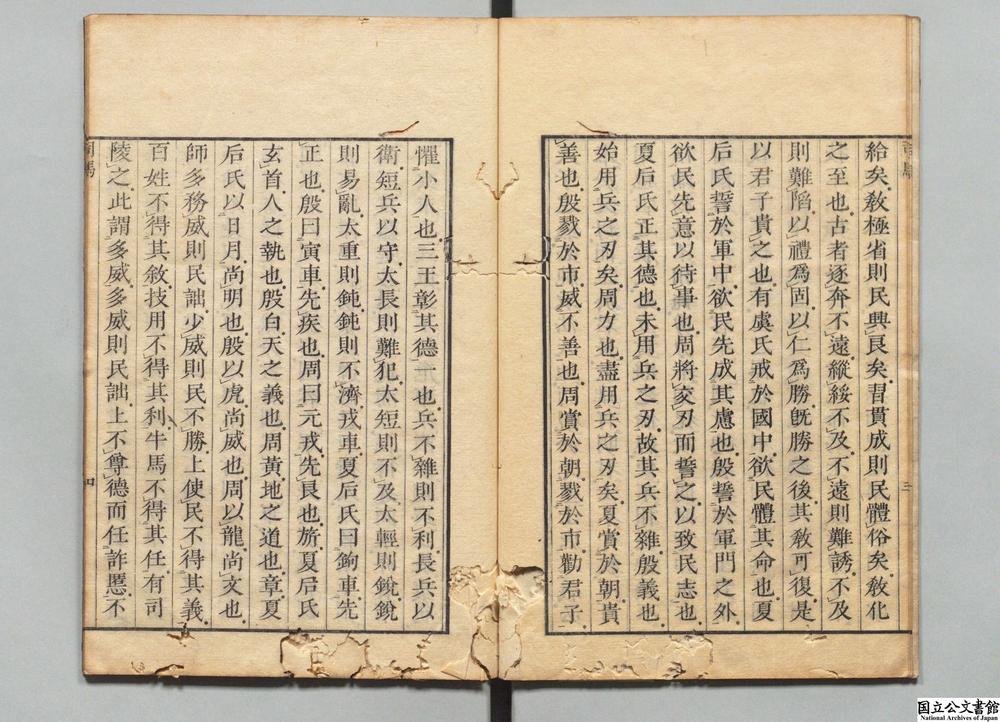 給矣教極省則民興良矣習貫成則民體俗矣教化
之至也古者逐奔不遠縱綏不及不遠則難誘不及
則難陷以禮爲固以仁爲勝旣勝之後其教可復是
以君子貴之也有虞氏戒於國中欲民體其命也夏
后氏誓於軍中欲民先成其慮也殷誓於軍門之外
欲民先意以待事也周將交刃而誓之以致民志也
夏后氏正其德也未用兵之刃故其兵不雜殷義也
始用兵之刃矣周力也盡用兵之刃矣夏賞於朝貴
善也殷戮於市威不善也周賞於朝戮於市勸君子
三
懼小人也三王彰其德一也兵不雜則不利長兵以
衛短兵以守太長則難犯太短則不及太輕則銳銳
則易亂太重則鈍鈍則不濟戎車夏后氏曰鉤車先
正也殷曰寅車先疾也周曰元戎先良也旂夏后氏
玄首人之執也殷白天之義也周黄地之道也章夏
后氏以日月尚明也殷以虎尚威也周以龍尚文也
師多務威則民詘少威則民不勝上使民不得其義
百姓不得其敘技用不得其利牛馬不得其任有司
陵之此謂多威多威則民詘上不尊德而任詐慝不
司馬
四
国立公文書館
National Archives of Japan